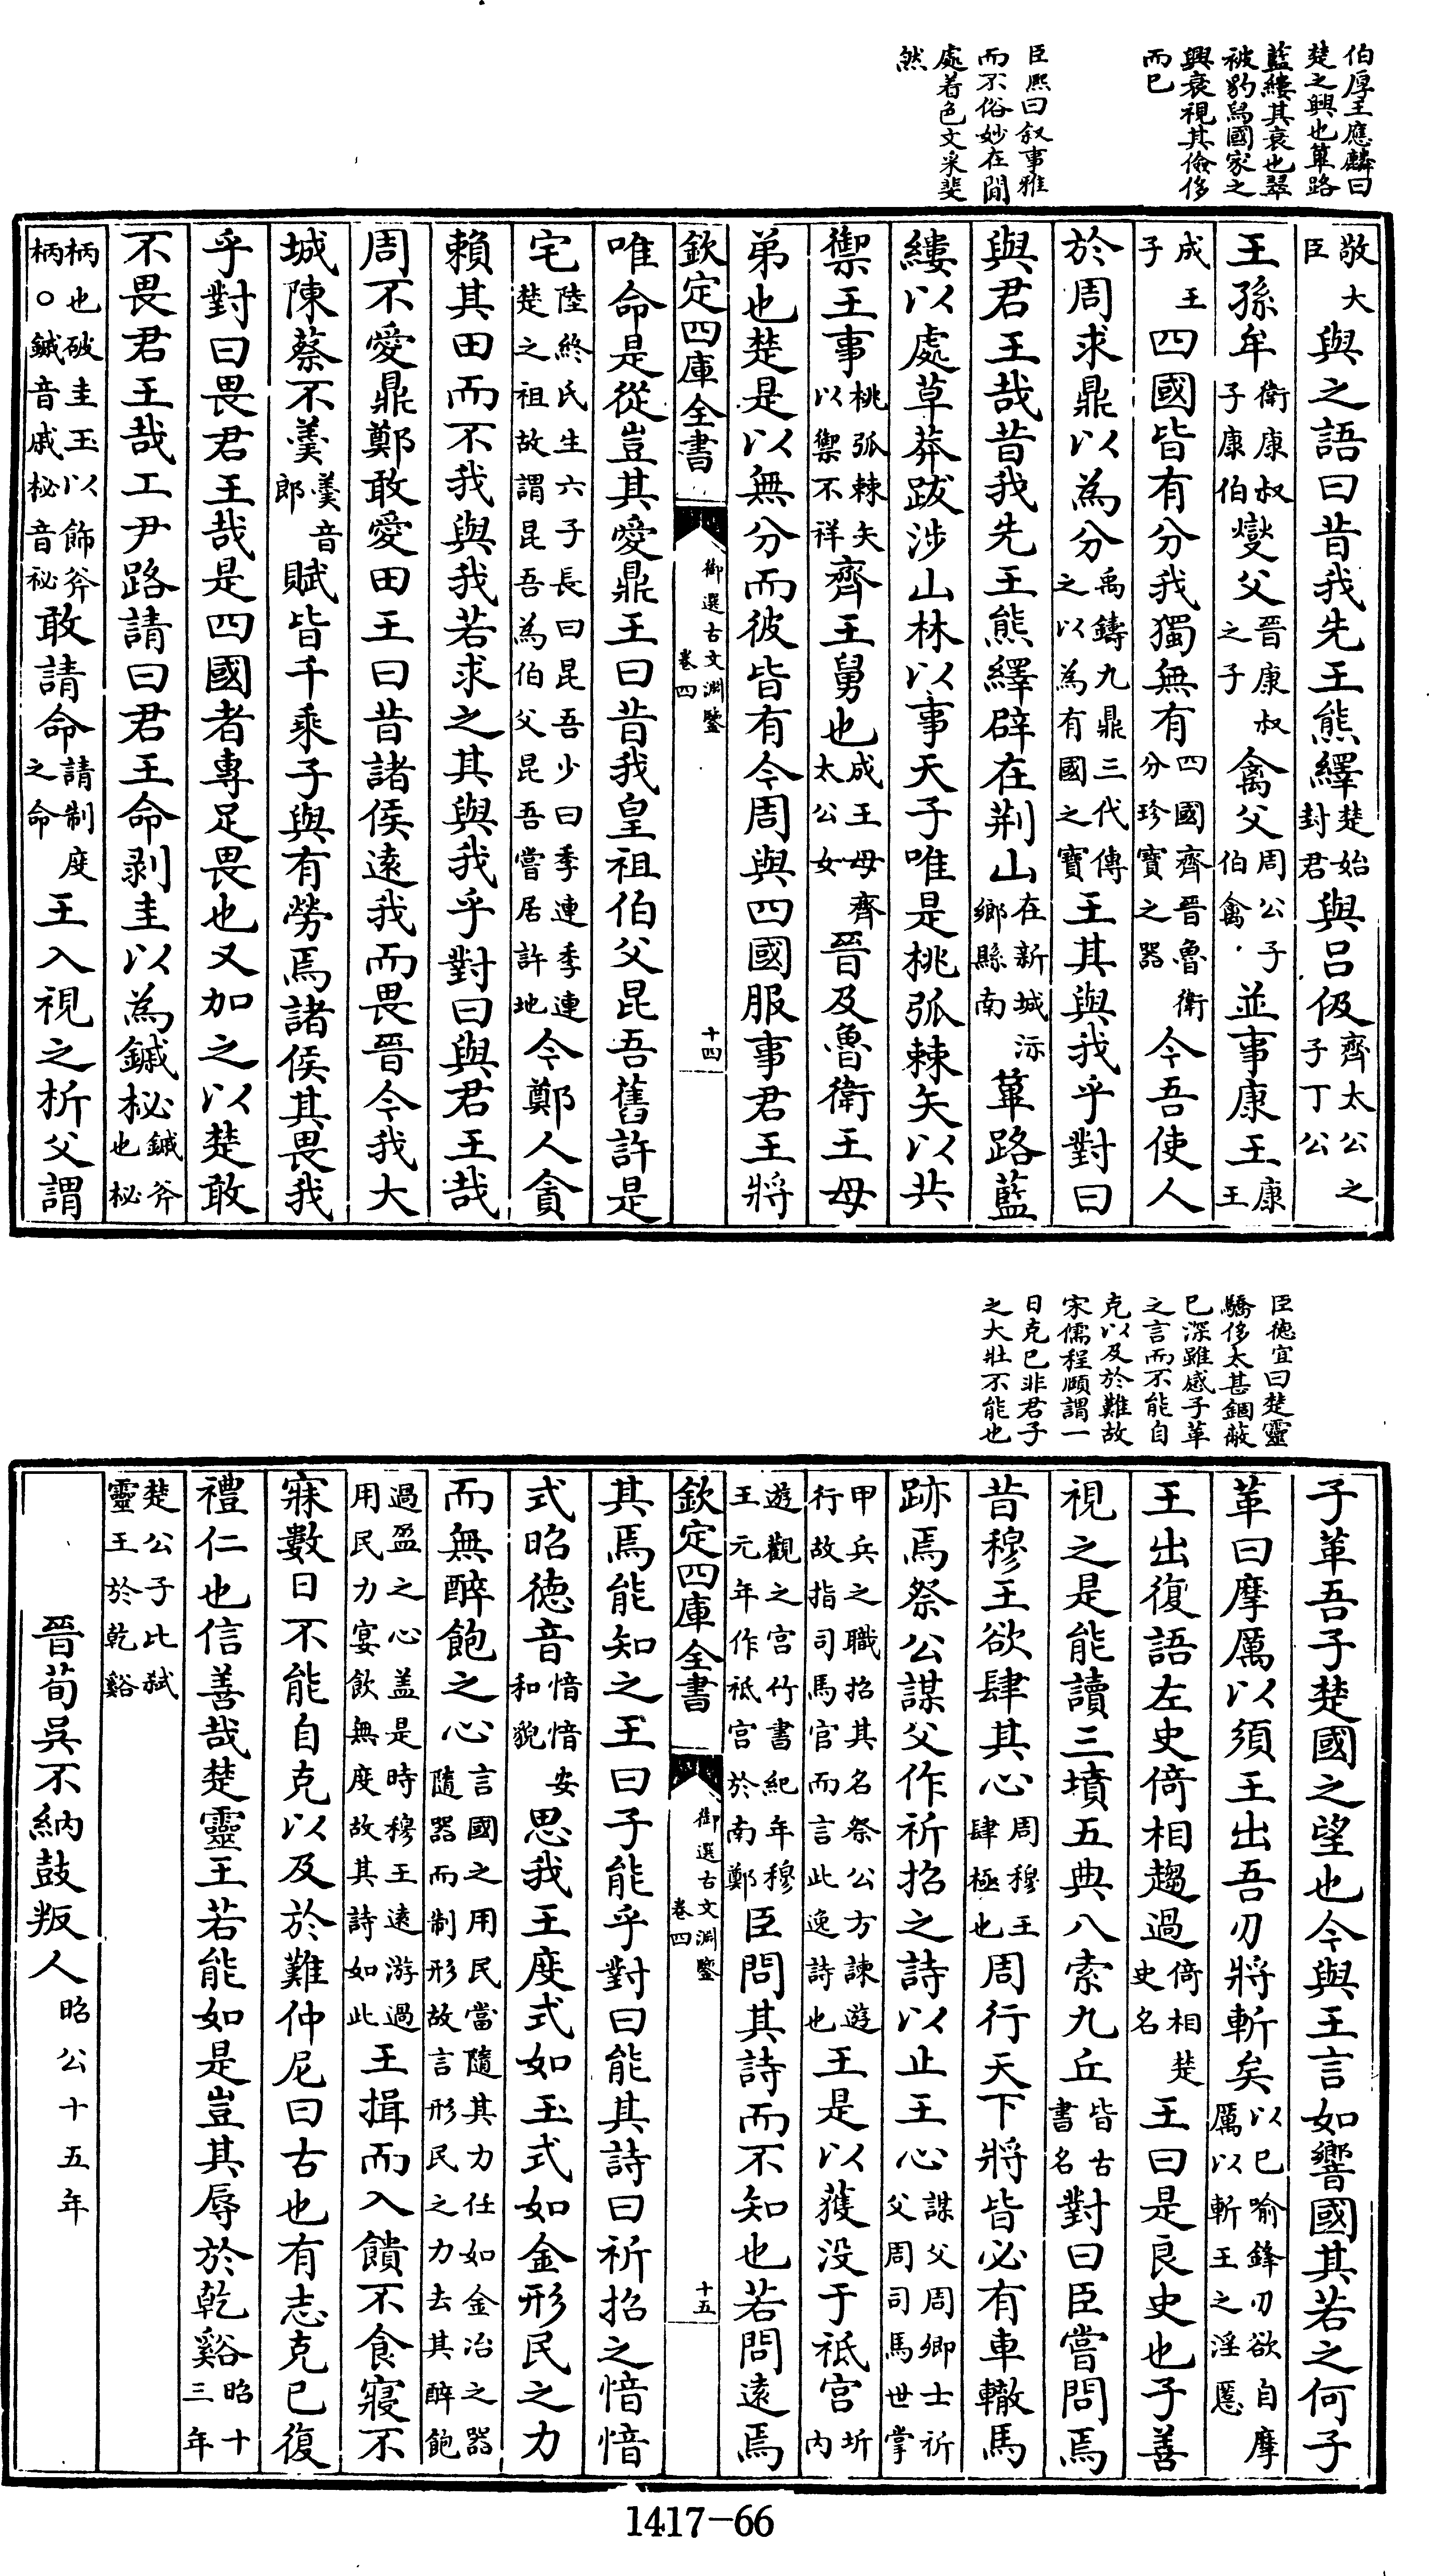 伯厚王應麟曰
楚之興也篳路
藍縷其衰也翠
被豹舄國家之
興衰視其儉侈
而已
臣熙曰叙事雅
而不俗妙在閒
處着色文采斐
然
敬大臣與之語曰昔我先王熊繹楚始封君與呂伋齊太公之子丁公
王孫牟衛康叔子康伯燮父晉康叔之子禽父周公子伯禽並事康王康王
成王子四國皆有分我獨無有四國齊晉魯衛分珍寶之器今吾使人
於周求鼎以為分禹鑄九鼎三代傳之以為有國之寶王其與我乎對曰
與君王哉昔我先王熊繹辟在荆山在新城沶鄉縣南篳路藍
縷以處草莽跋涉山林以事天子唯是桃弧棘矢以共
禦王事桃弧棘矢以禦不祥齊王舅也成王母齊太公女晉及魯衛王母
弟也楚是以無分而彼皆有今周與四國服事君王將
欽定四庫全書 御選古文淵鑒 卷四 十四
唯命是從豈其愛鼎王曰昔我皇祖伯父昆吾舊許是
宅陸終氏生六子長曰昆吾少曰季連季連楚之祖故謂昆吾為伯父昆吾嘗居許地今鄭人貪
賴其田而不我與我若求之其與我乎對曰與君王哉
周不愛鼎鄭敢愛田王曰昔諸侯遠我而畏晉今我大
城陳蔡不羹羹音郎賦皆千乘子與有勞焉諸侯其畏我
乎對曰畏君王哉是四國者專足畏也又加之以楚敢
不畏君王哉工尹路請曰君王命剥圭以為鏚柲鏚斧也柲
柄也破圭玉以飾斧柄○鏚音戚柲音祕敢請命請制度之命王入視之析父謂
臣德宜曰楚靈
驕侈太甚錮蔽
已深雖感子革
之言而不能自
克以及於難故
宋儒程頤謂一
日克已非君子
之大壯不能也
子革吾子楚國之望也今與王言如響國其若之何子
革曰摩厲以須王出吾刃將斬矣以已喻鋒刃欲自摩厲以斬王之淫慝
王出復語左史倚相趨過倚相楚史名王曰是良史也子善
視之是能讀三墳五典八索九丘皆古書名對曰臣嘗問焉
昔穆王欲肆其心周穆王肆極也周行天下將皆必有車轍馬
跡焉祭公謀父作祈招之詩以止王心謀父周卿士祈父周司馬世掌
甲兵之職招其名祭公方諫遊行故指司馬官而言此逸詩也王是以獲没于祗宫圻内
遊觀之宫竹書紀年穆王元年作祗宫於南鄭臣問其詩而不知也若問遠焉
欽定四庫全書 御選古文淵鑒 卷四 十五
其焉能知之王曰子能乎對曰能其詩曰祈招之愔愔
式昭德音愔愔安和貌思我王度式如玉式如金形民之力
而無醉飽之心言國之用民當隨其力任如金冶之器隨器而制形故言形民之力去其醉飽
過盈之心盖是時穆王遠游過用民力宴飲無度故其詩如此王揖而入饋不食寢不
寐數日不能自克以及於難仲尼曰古也有志克已復
禮仁也信善哉楚靈王若能如是豈其辱於乾谿昭十三年
楚公子比弑靈王於乾谿
晉荀吳不納鼓叛人昭公十五年
1417-66